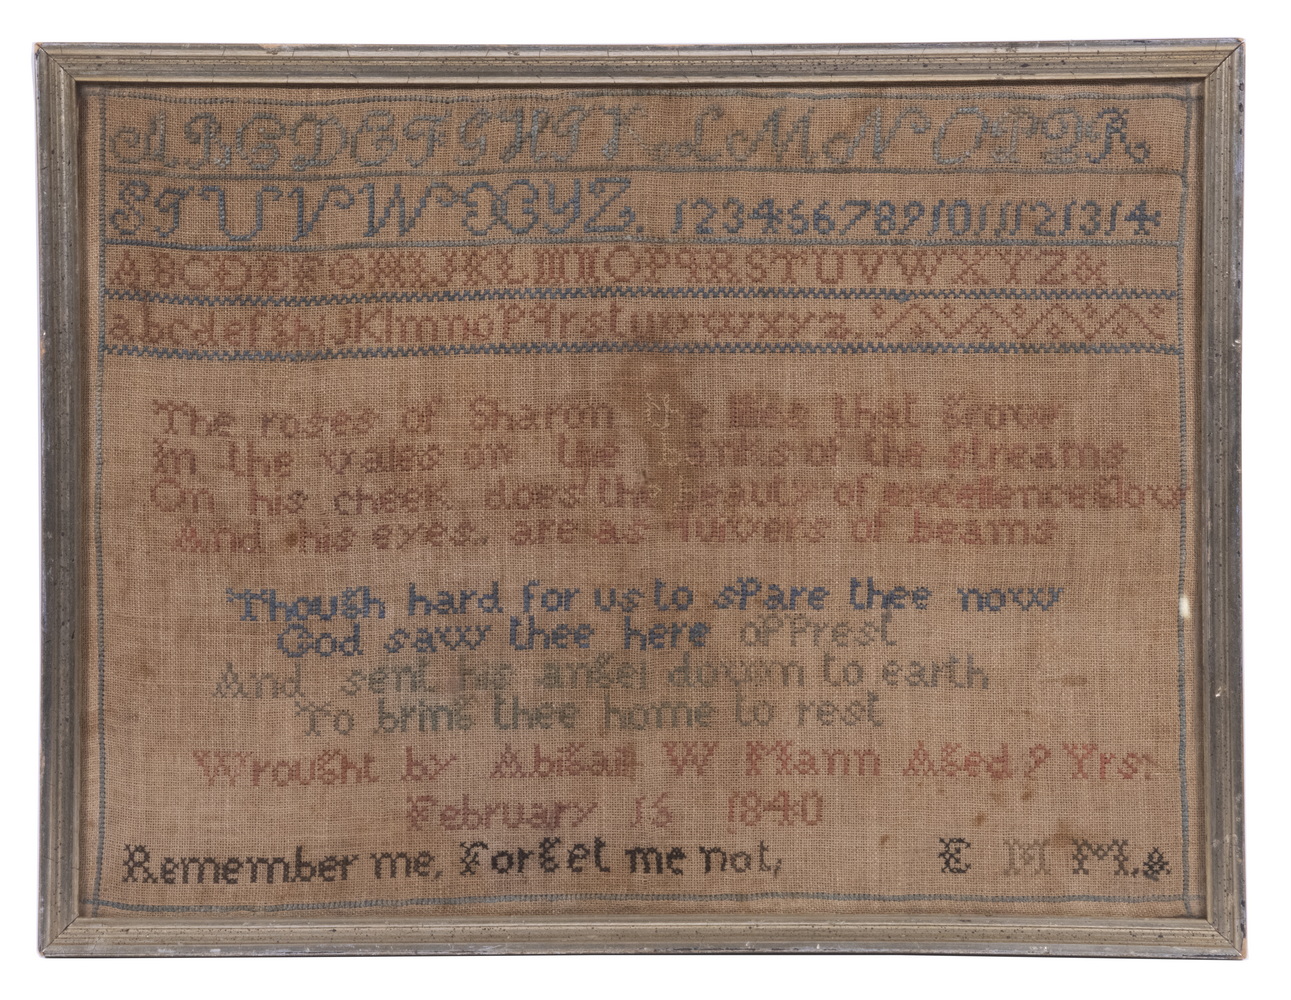 A B C D E F G H I K L M N O P Q R
S T U V W X Y Z. 1 2 3 4 5 6 7 8 9 10 11 12 13 14
A B C D E F G H I J K L M N O P Q R S T U V W X Y Z &
a b c d e f g h i j K l m n o P q r s t u v w x y z
The roses of Sharon the that grow
In the vales on the banks of the streams
On his cheek does the beauty of excellence glow
And his eyes. are as quivers of beams
Though hard for us to sPare thee now
God saw thee here oPPrest
And sent his angel down to earth
To bring thee home to rest
Wrought by Abigail W Mann Aged Yrs.
February 16 1840
Remember me, Forget me not, E M M. &